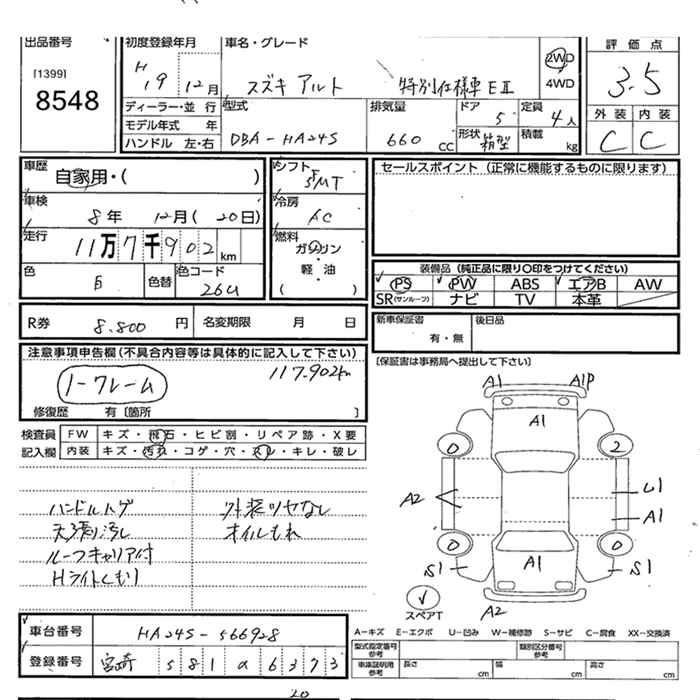 出品番号 初度登録年月 車名・グレード 2WD 4WD 評価点
[1399] 8548 H19 12月 スズキ アルト 特別仕様車EⅡ 3.5
ディーラー・並行 型式 排気量 ドア 定員 外装 内装
モデル年式 年 DBA-HA24S 660cc 5 4人 C C
ハンドル 左・右 形状 箱型 積載 kg
車歴 自家用・( ) シフト 5MT セールスポイント(正常に機能するものに限ります)
車検 8年 12月(20日) 冷房 AC
走行 11万7千902km 燃料 ガソリン・軽・油 ( )
色 白 色替 色コード 26U 装備品(純正品に限り○印をつけてください)
PS PW ABS エアB AW
SR(サンルーフ) ナビ TV 本革
R券 8.800円 名変期限 月 日 新車保証書 有・無 後日品
注意事項申告欄(不具合内容等は具体的に記入して下さい) [保証書は事務局へ提出して下さい]
117.902km
ノークレーム
修復歴 有[箇所 ]
検査員 FW キズ・飛石・ヒビ割・リペア跡・X要
記入欄 内装 キズ・汚れ・コゲ・穴・スレ・キレ・破レ
ハンドルハゲ 外装ツヤなし
天張り汚し オイルもれ
ルーフキャリア付
Hライトくもり
A1 A1P
A1
0 2
A2 U1
A1
0 0
S1 A1 S1
スペアT A2
車台番号 HA24S-566928 A-キズ E-エクボ U-凹み W-補修跡 S-サビ C-腐食 XX-交換済
型式指定番号 参考 類別区分番号 参考
登録番号 宮崎 581 a 6373 車庫証明用 参考 長さ cm 幅 cm 高さ cm
20